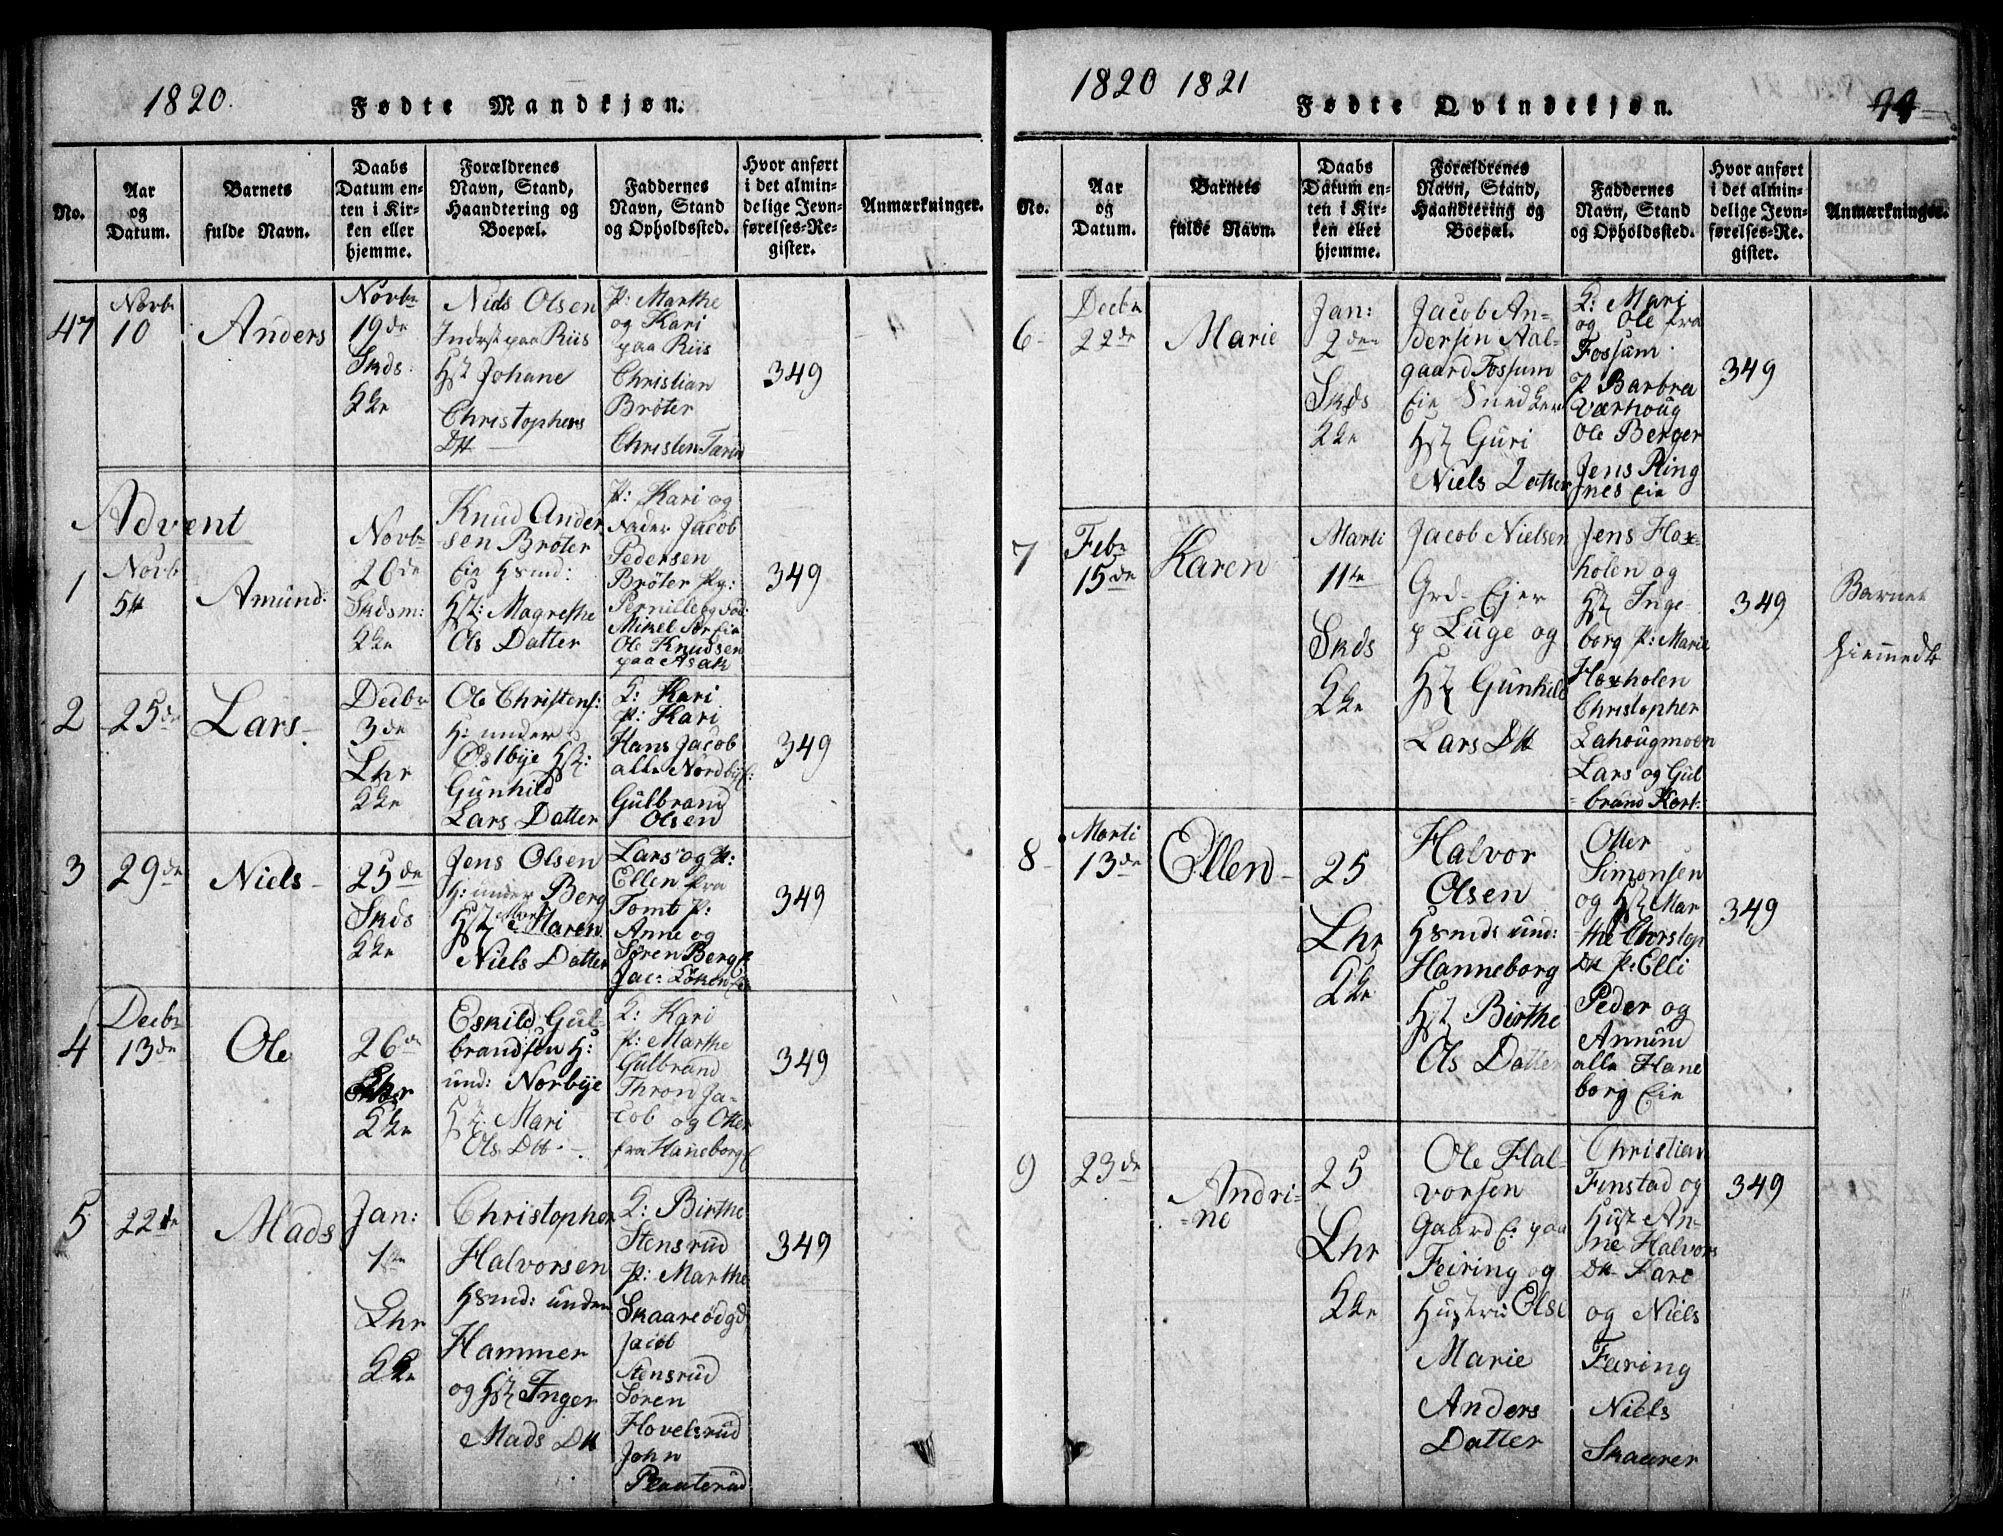 1820.
Fødte Mandkjøn.
No.
Aar
og
Datum.
Barnets
fulde Navn.
Daabs
Datum en-
ten i Kir-
ken eller
hjemme.
Forældrenes
Navn, Stand,
Haandtering og
Boepæl.
Faddernes
Navn, Stand
og Opholdssted.
Hvor anført
i det almin-
delige Jevn-
førelses-Re-
gister.
Anmærkninger.
47
Novbr
10
Anders
Novbr
19de
Skds:
Kke
Niels Olsen
Inderst paa Riis
Hst Johane
Christophers
Dtt
P: Marthe
og Kari
paa Riis
Christian
Brøter
Christen
349
Advent
1
Novbr
5tt
Amund
Novbr
26de
Skdsm:
Kke
Knud Ander
sen Brøter
Eie Hsmd:
Hst: Magrethe
Ols Datter
P: Kari og
Fader Jacob
Pedersen
Brøter Pg:
Pernille og
Mikel
Ole Knudsen
paa Asak
349
2
25de
Lars
Decbr
3de
Lhr
Kke
Ole Christens:
H: under
Østbye Hst:
Gunhild
Lars Datter
K: Kari
P: Kari
Hans Jacob
alle Nordbye:
Gulbrand
Olsen
349
3
29de
Niels
25de
Skds
Kke
Jens Olsen
H: under Berg
Hst Maren
Niels Datter
Lars og P:
Ellen fra
Tomt P:
Anne og
Søren Berg
Jac: Løken Eie
349
4
Decbr
13de
Ole
26de
Lhr
Kke
Eskild Gul-
brandsen H:
und: Norbye
Hst Mari
Ols Dtt
K: Kari
P: Marthe
Gulbrand
Thron Ja-
cob og Otter
fra Haneborg
349
5
22de
Mads
Jan:
1te
Lhr
Kke
Christopher
Halvorsen
Hsmd: under
Hammer
og Hst Inger
Mads Dtt
K: Birthe
Stensrud
P: Marthe
Skaareødgd
Jacob
Stensrud
Søren
Hovelsrud
John
349
1820 1821
Fødte Qvindekjøn.
99
No.
Aar
og
Datum.
Barnets
fulde Navn.
Daabs
Datum en-
ten i Kir-
ken eller
hjemme.
Forældrenes
Navn, Stand,
Haandtering og
Boepæl.
Faddernes
Navn, Stand
og Opholdssted.
Hvor anført
i det almin-
delige Jevn-
førelses-Re-
gister.
Anmærkninger.
6
Decbr
22de
Marie
Jan:
2den
Skds
Kke
Jacob An-
dersen Aal-
gaard Fossum
Eie Snedker
Hst Guri
Niels Datter
K: Mari
og Ole fra
Fossum
P Barbra
Værhoug
Ole Berger
Jens Ring
nes Eie
349
7
Febr
15de
Karen
Marti
11te
Skds
Kke
Jacob Nielsen
Grd-Ejer
p Luge og
Hst Gunhild
Lars Dtt
Jens Hox-
holen og
Hst Inge-
borg P: Marie
Hoxholen
Christopher
Lahougmoen
Lars og Gul
brand
349
Barnet
hiemedt
8
Marti
13de
Ellen
25
Lhr
Kke
Halvor
Olsen
Hsmds und:
Hanneborg
Hst Birthe
Ols Datter
Otter
Simonsen
og Hst Mar
the Chrstop
Dtt P: Elli
Peder og
Amund
alle Hane
borg Eie
349
9
23de
Andri-
-ne
25
Lhr
Kke
Ole Hal-
vorsen
Gaard E: paa
Feiring og
Hustru Olse
Marie
Anders
Datter
Christian
Finstad og
Hust An-
ne Halvors
Dtt Kari
og Niels
Feiring
Niels
Skaarer
349